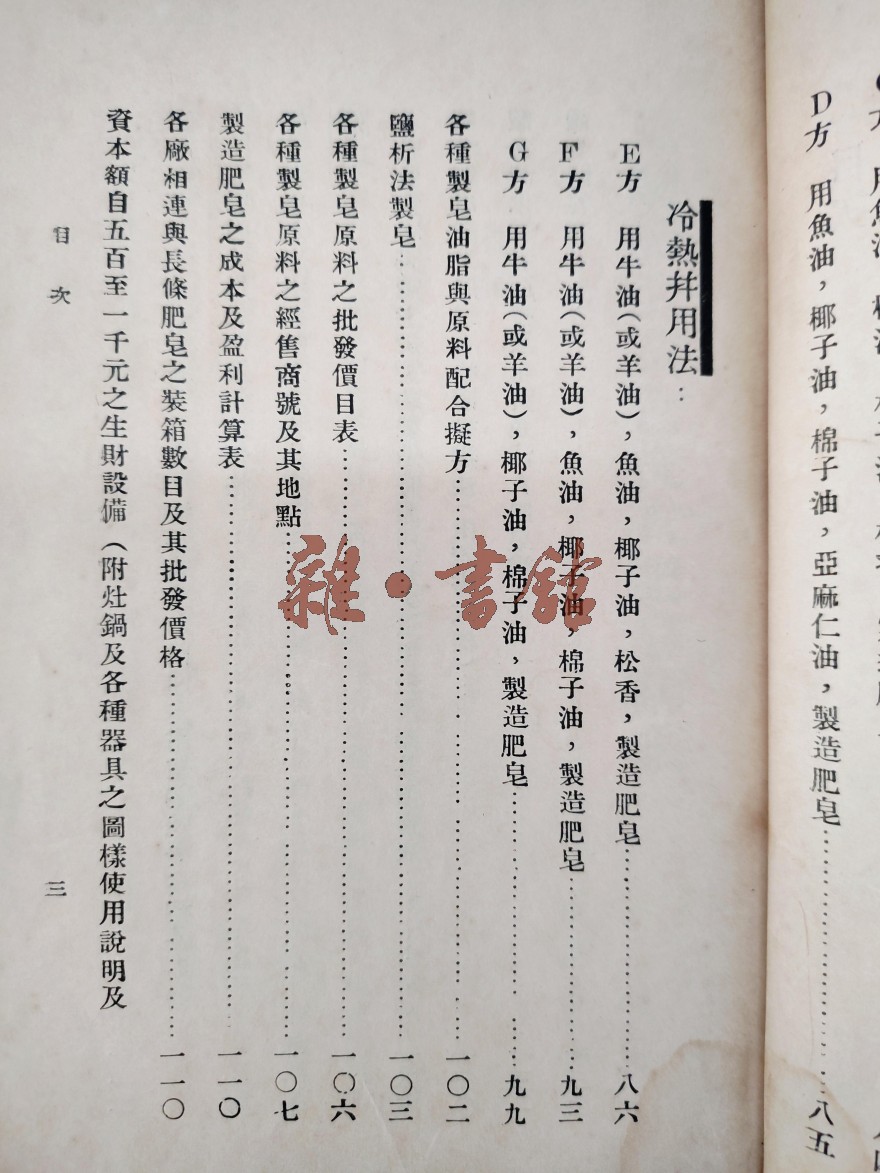 D方　用魚油，椰子油，棉子油，亞麻仁油，製造肥皂……八五
冷熱幷用法：
E方　用牛油（或羊油），魚油，椰子油，松香，製造肥皂……八六
F方　用牛油（或羊油），魚油，椰子油，棉子油，製造肥皂……九三
G方　用牛油（或羊油），椰子油，棉子油，製造肥皂……九九
各種製皂油脂與原料配合擬方……一〇二
鹽析法製皂……一〇三
各種製皂原料之批發價目表……一〇六
各種製皂原料之經售商號及其地點……一〇七
製造肥皂之成本及盈利計算表……一一〇
各廠相連與長條肥皂之裝箱數目及其批發價格……一一〇
資本額自五百至一千元之生財設備（附灶鍋及各種器具之圖樣使用說明及
目次
三
雜·書館